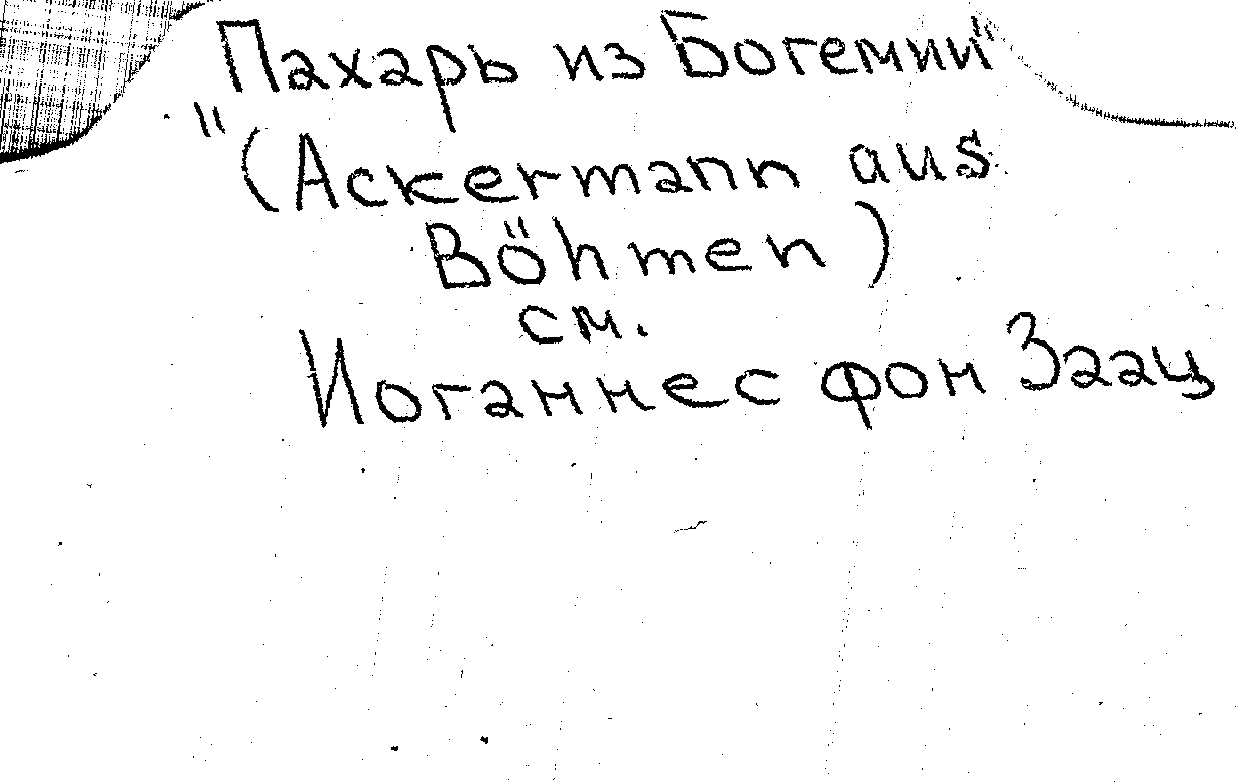 "Пахарь из Богемии"
(Ackermann aus
Böhmen)
см.
Иоганнес фон Заац